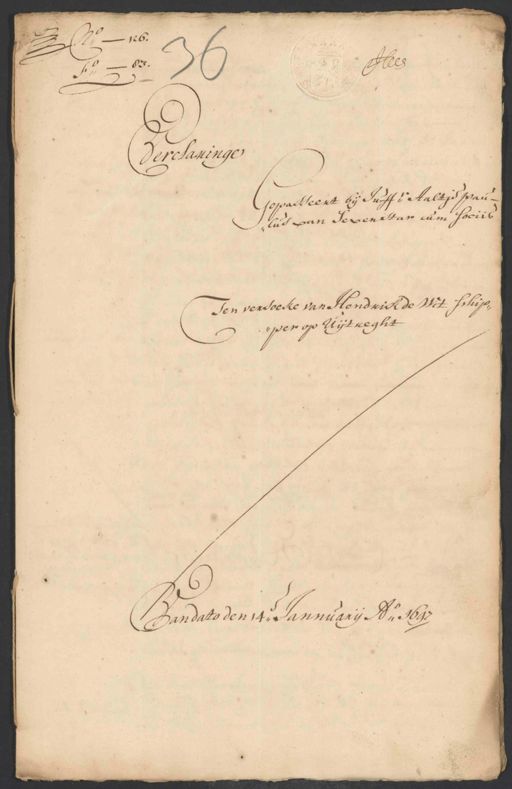 N.o — 126.
36
F.o — 83.
Verclaringe
Gepasseert bij Juff.r Aaltjs pau-
lus van Sevenstar cum sociis
Ten versoeke van Hendrick de Wit schip-
per op Uijtreght
Van dato den 14.e Jannuarij A.o 1647